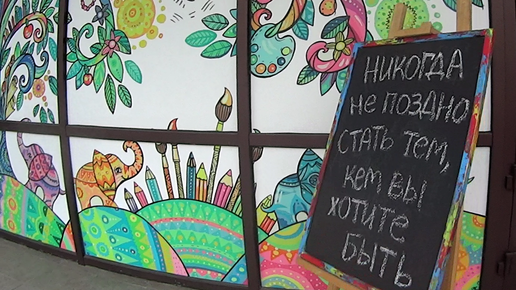 НИКОГДА
НЕ ПОЗДНО
СТАТЬ ТЕМ,
КЕМ ВЫ
ХОТИТЕ
БЫТЬ